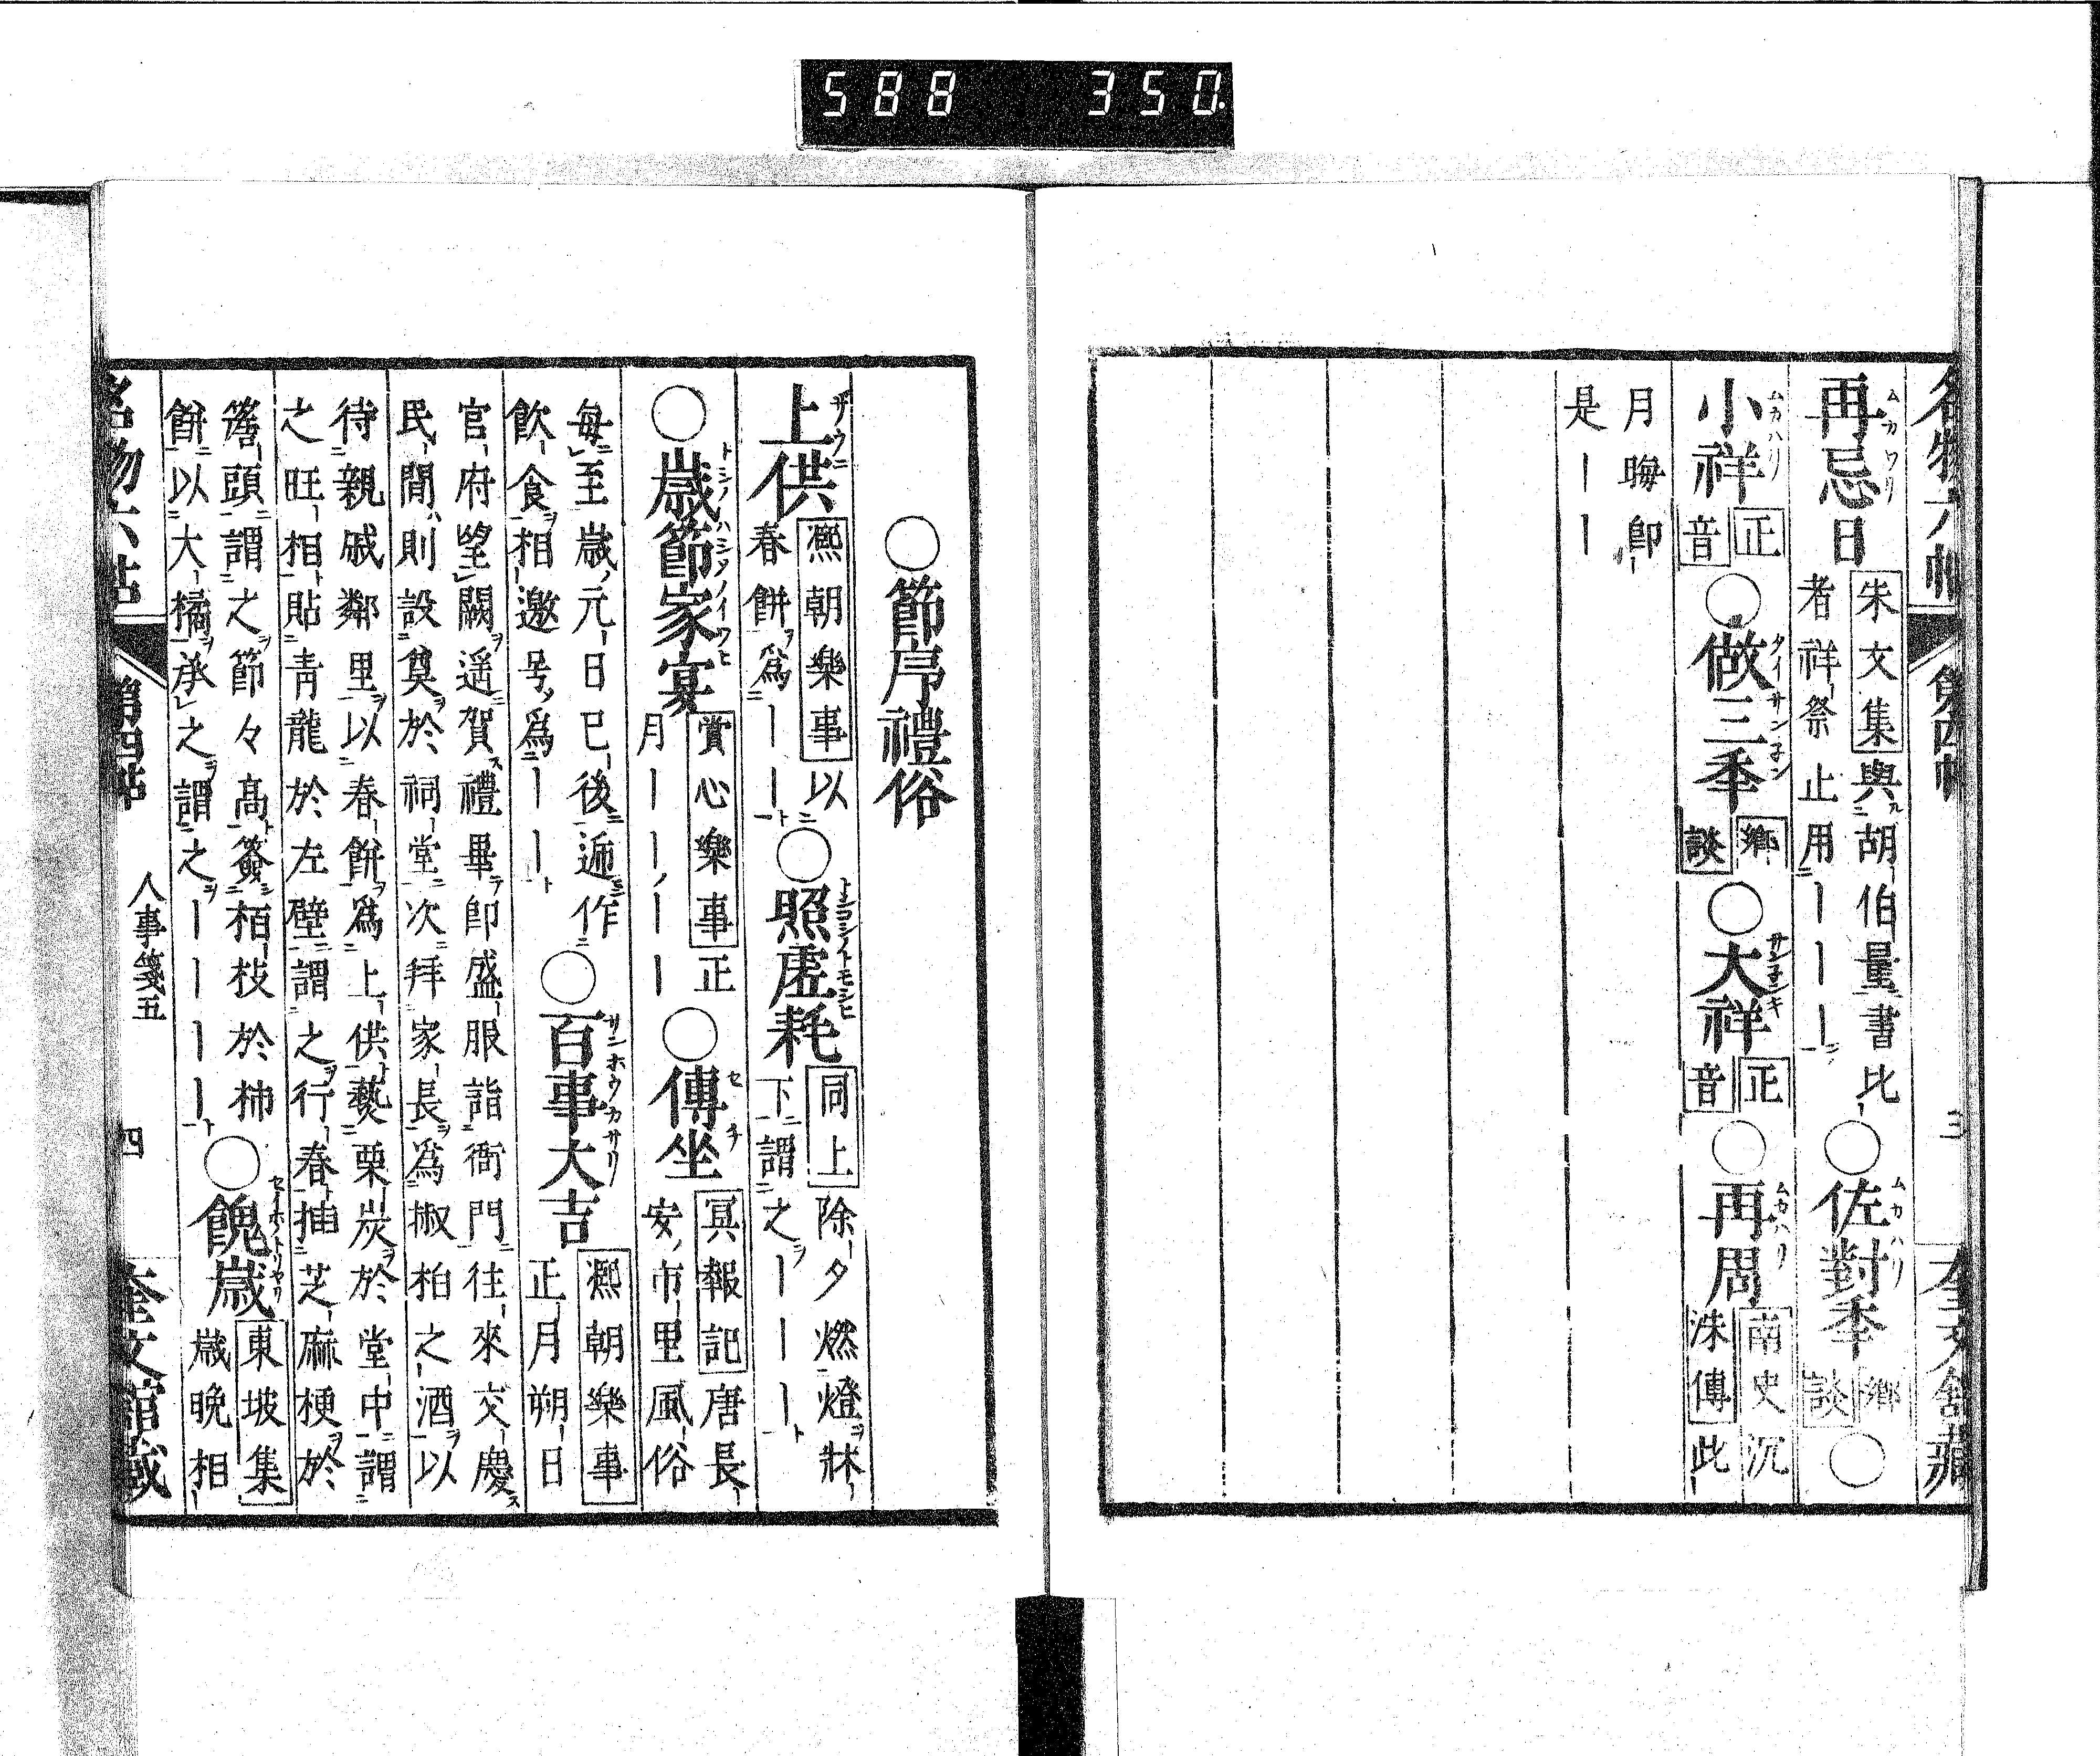 588 350.
名物六帖 第四帖 三 奎文館藏
再忌日 朱文集 與胡伯量書比者祥祭止用｜｜｜ ○佐對季 鄉談 ○
小祥 正音 ○做三季 鄉談 ○大祥 正音 ○再周 南史沉洙傳 此
月晦即
是｜｜
○節序禮俗
上供 熈朝樂事 以春餅爲｜｜ ○照虛耗 同上 除夕燃燈牀下謂之｜｜｜
○歲節家宴 賞心樂事 正月｜｜｜｜ ○傳坐 冥報記 唐長安市里風俗
每至歲元日已後遞作飲食相邀号爲｜｜ ○百事大吉 熈朝樂事 正月朔日
官府望闕遥賀禮畢即盛服詣衙門往來交慶
民間則設奠於祠堂次拜家長爲椒柏之酒以
待親戚鄰里以春餅爲上供爇栗炭於堂中謂
之旺相貼青龍於左壁謂之行春揷芝麻梗於
簷頭謂之節々高簽栢枝於柿
餅以大橘承之謂之｜｜｜｜ ○餽歲 東坡集 歲晚相
名物六帖 第四帖 人事箋五 四 奎文館藏